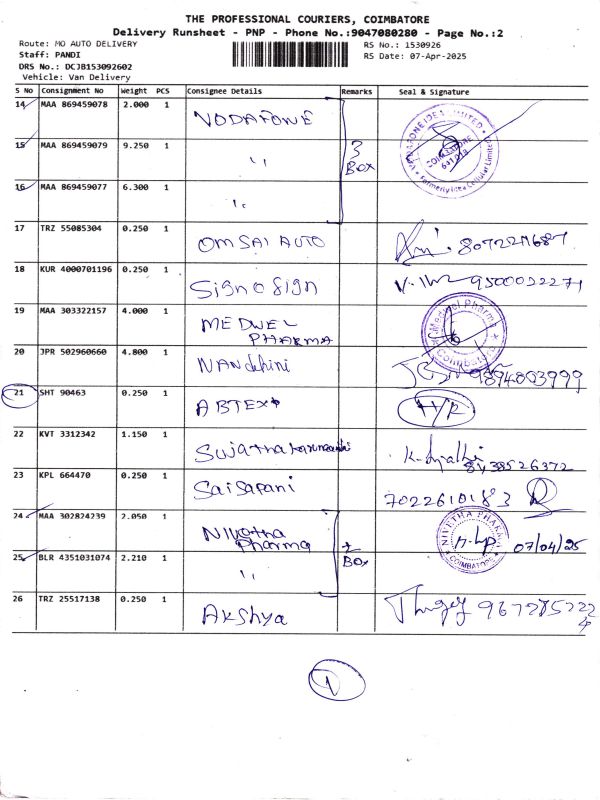 THE PROFESSIONAL COURIERS, COIMBATORE
Delivery Runsheet - PNP - Phone No.:9047080280 - Page No.:2
Route: MO AUTO DELIVERY
RS No.: 1530926
Staff: PANDI
RS Date: 07-Apr-2025
DRS No.: DCJB153092602
Vehicle: Van Delivery
S No Consignment No Weight PCS Consignee Details Remarks Seal & Signature
14 MAA 869459078 2.000 1 VODAFONE
15 MAA 869459079 9.250 1 " 3 BOX
16 MAA 869459077 6.300 1 "
VODAFONE IDEA LIMITED
COIMBATORE
641018
Formerly Idea Cellular Limited
17 TRZ 55085304 0.250 1 OM SAI AUTO
18 KUR 4000701196 0.250 1 Sign O Sign 9500022271
19 MAA 303322157 4.000 1 MEDWEL PHARMA
Medwel Pharma
Coimbatore
20 JPR 502960660 4.800 1 NANdhini 9894003999
21 SHT 90463 0.250 1 ABTEX H/R
22 KVT 3312342 1.150 1
23 KPL 664470 0.250 1 Saisarani 7022610183
24 MAA 302824239 2.050 1 Nivetha Pharma 2 BOX 07/04/25
NIVETHA PHARMA
COIMBATORE
25 BLR 4351031074 2.210 1 "
26 TRZ 25517138 0.250 1 Akshya
1